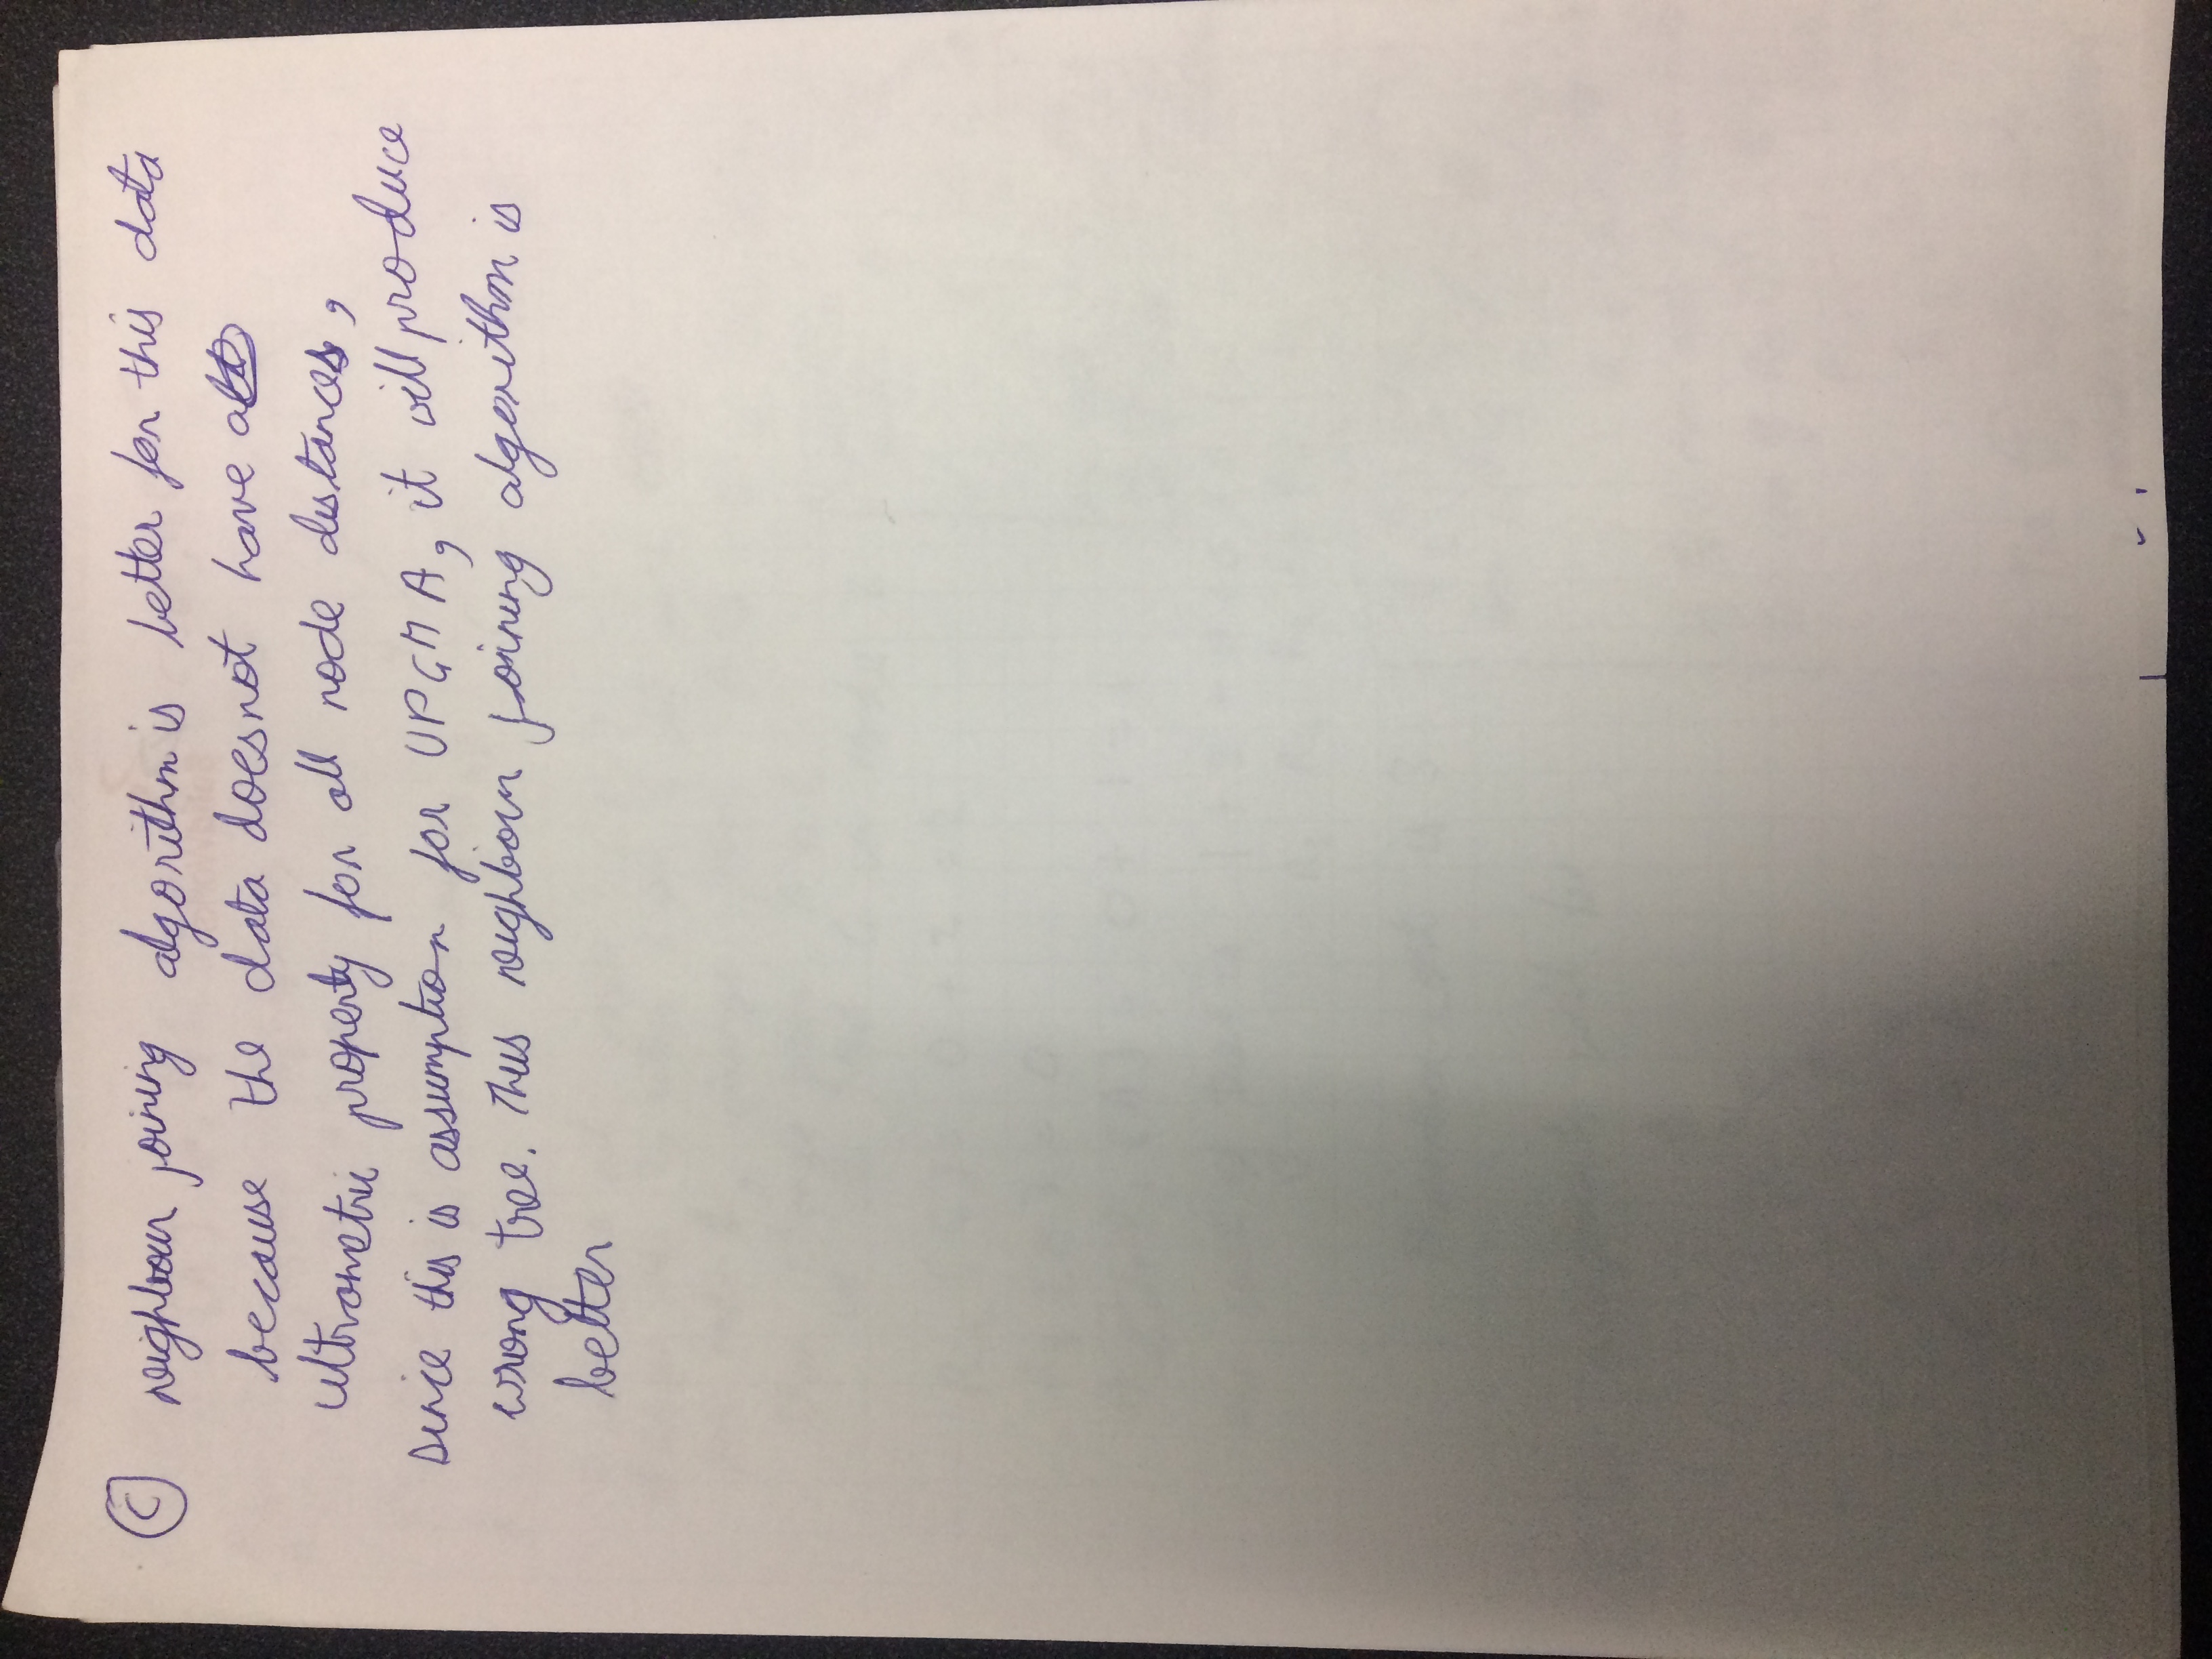 C neighbour joining algorithm is better for this data
because the data does not have
ultrametric property for all node distances,
since this is assumption for UPGMA, it will produce
wrong tree. Thus neighbour joining algorithm is
better